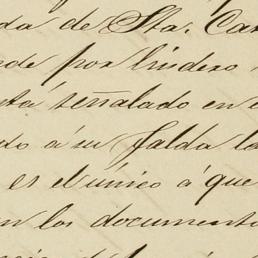 da de Sta. Car
de por lindero
tá señalado en
do á su falda la
es el único á que
en los documento